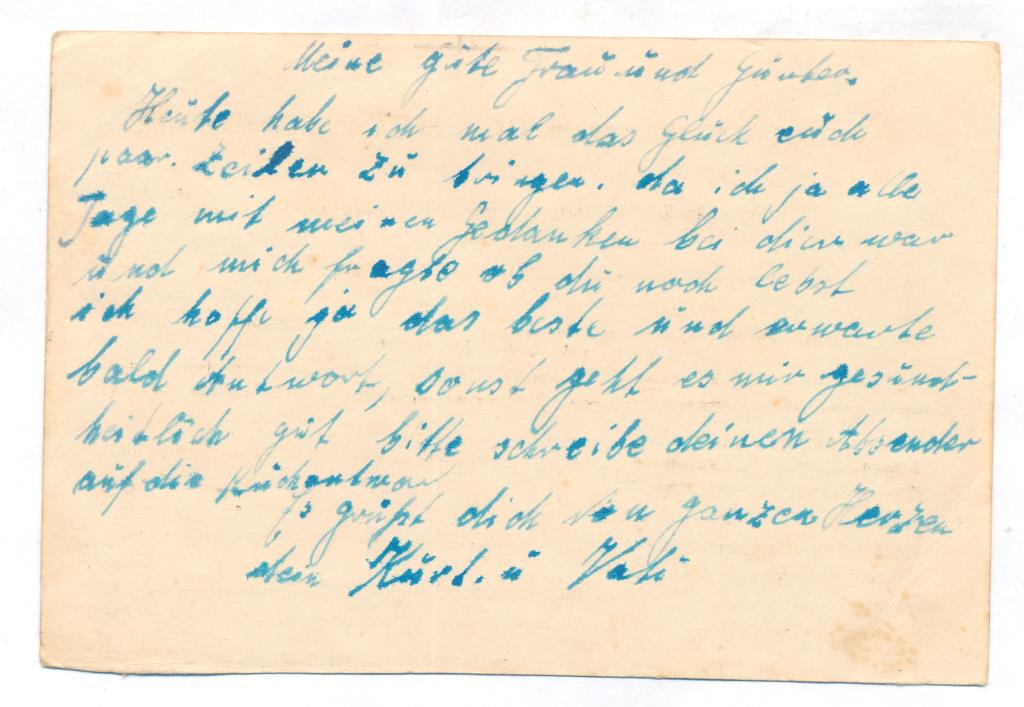 Meine gute Frau und Günter.
Heute habe ich mal das Glück euch
paar. Zeilen zu bringen. da ich ja alle
Tage mit meinen Gedanken bei dier war
und mich fragte ob du noch lebst
ich hoffe ja das beste und erwarte
bald Antwort, sonst geht es mir gesund-
heitlich gut bitte schreibe deinen Absender
auf die
Es grüßt dich von ganzen Herzen
dein Kurt. u Vati